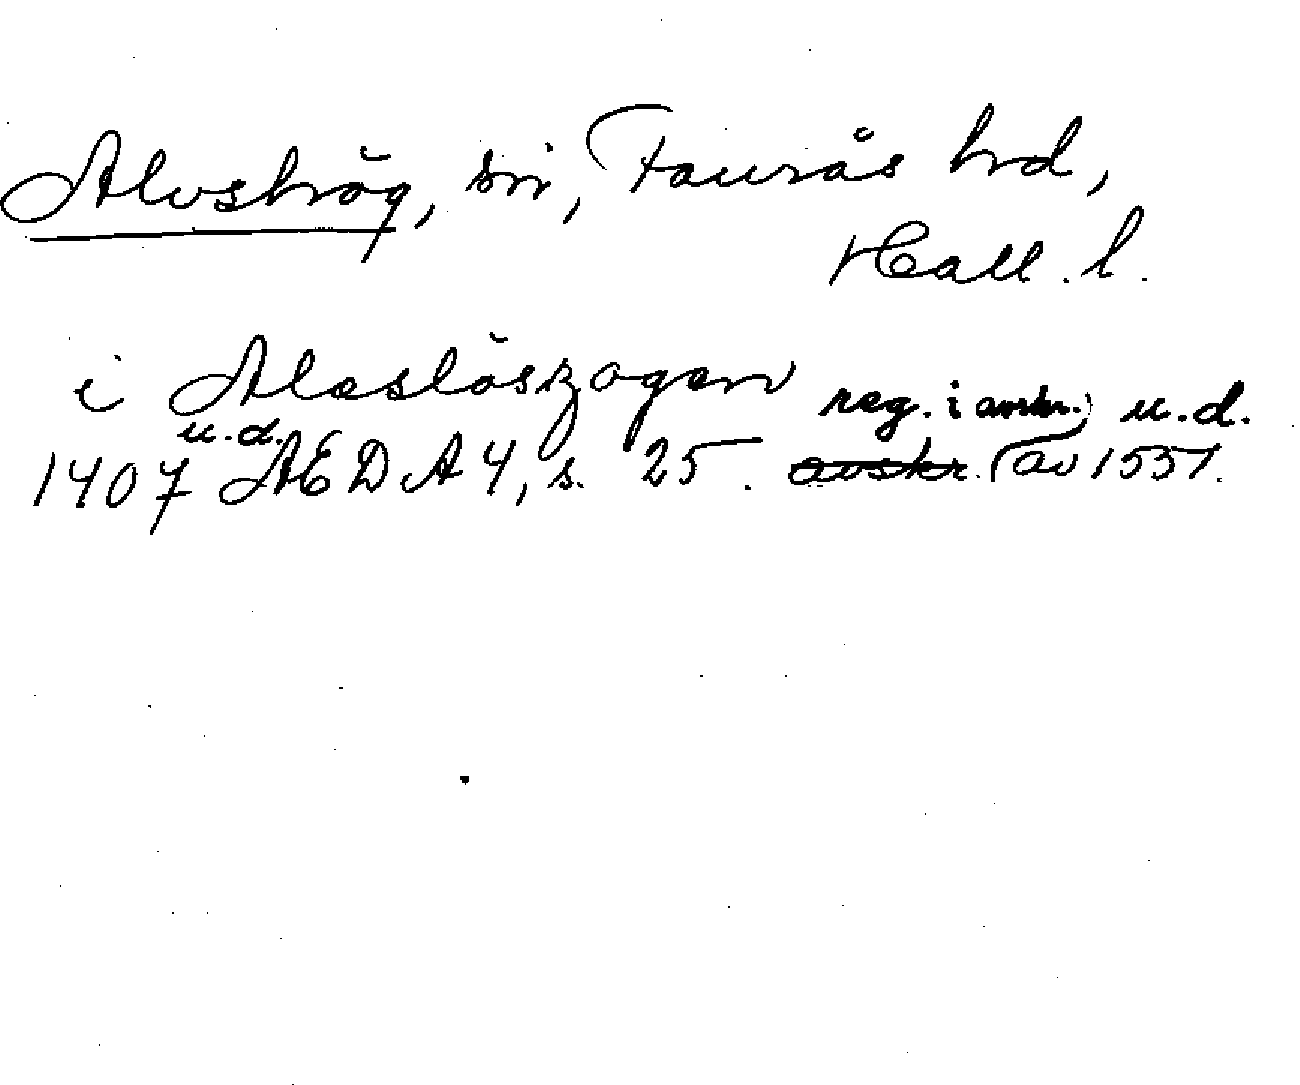 Alvshög, sn, Faurås hrd,
Hall. l.
i Aleslöszogen reg. i avskr. u.d.
u.d.
1407 ÆDA 4, s. 25. avskr. av 1551.